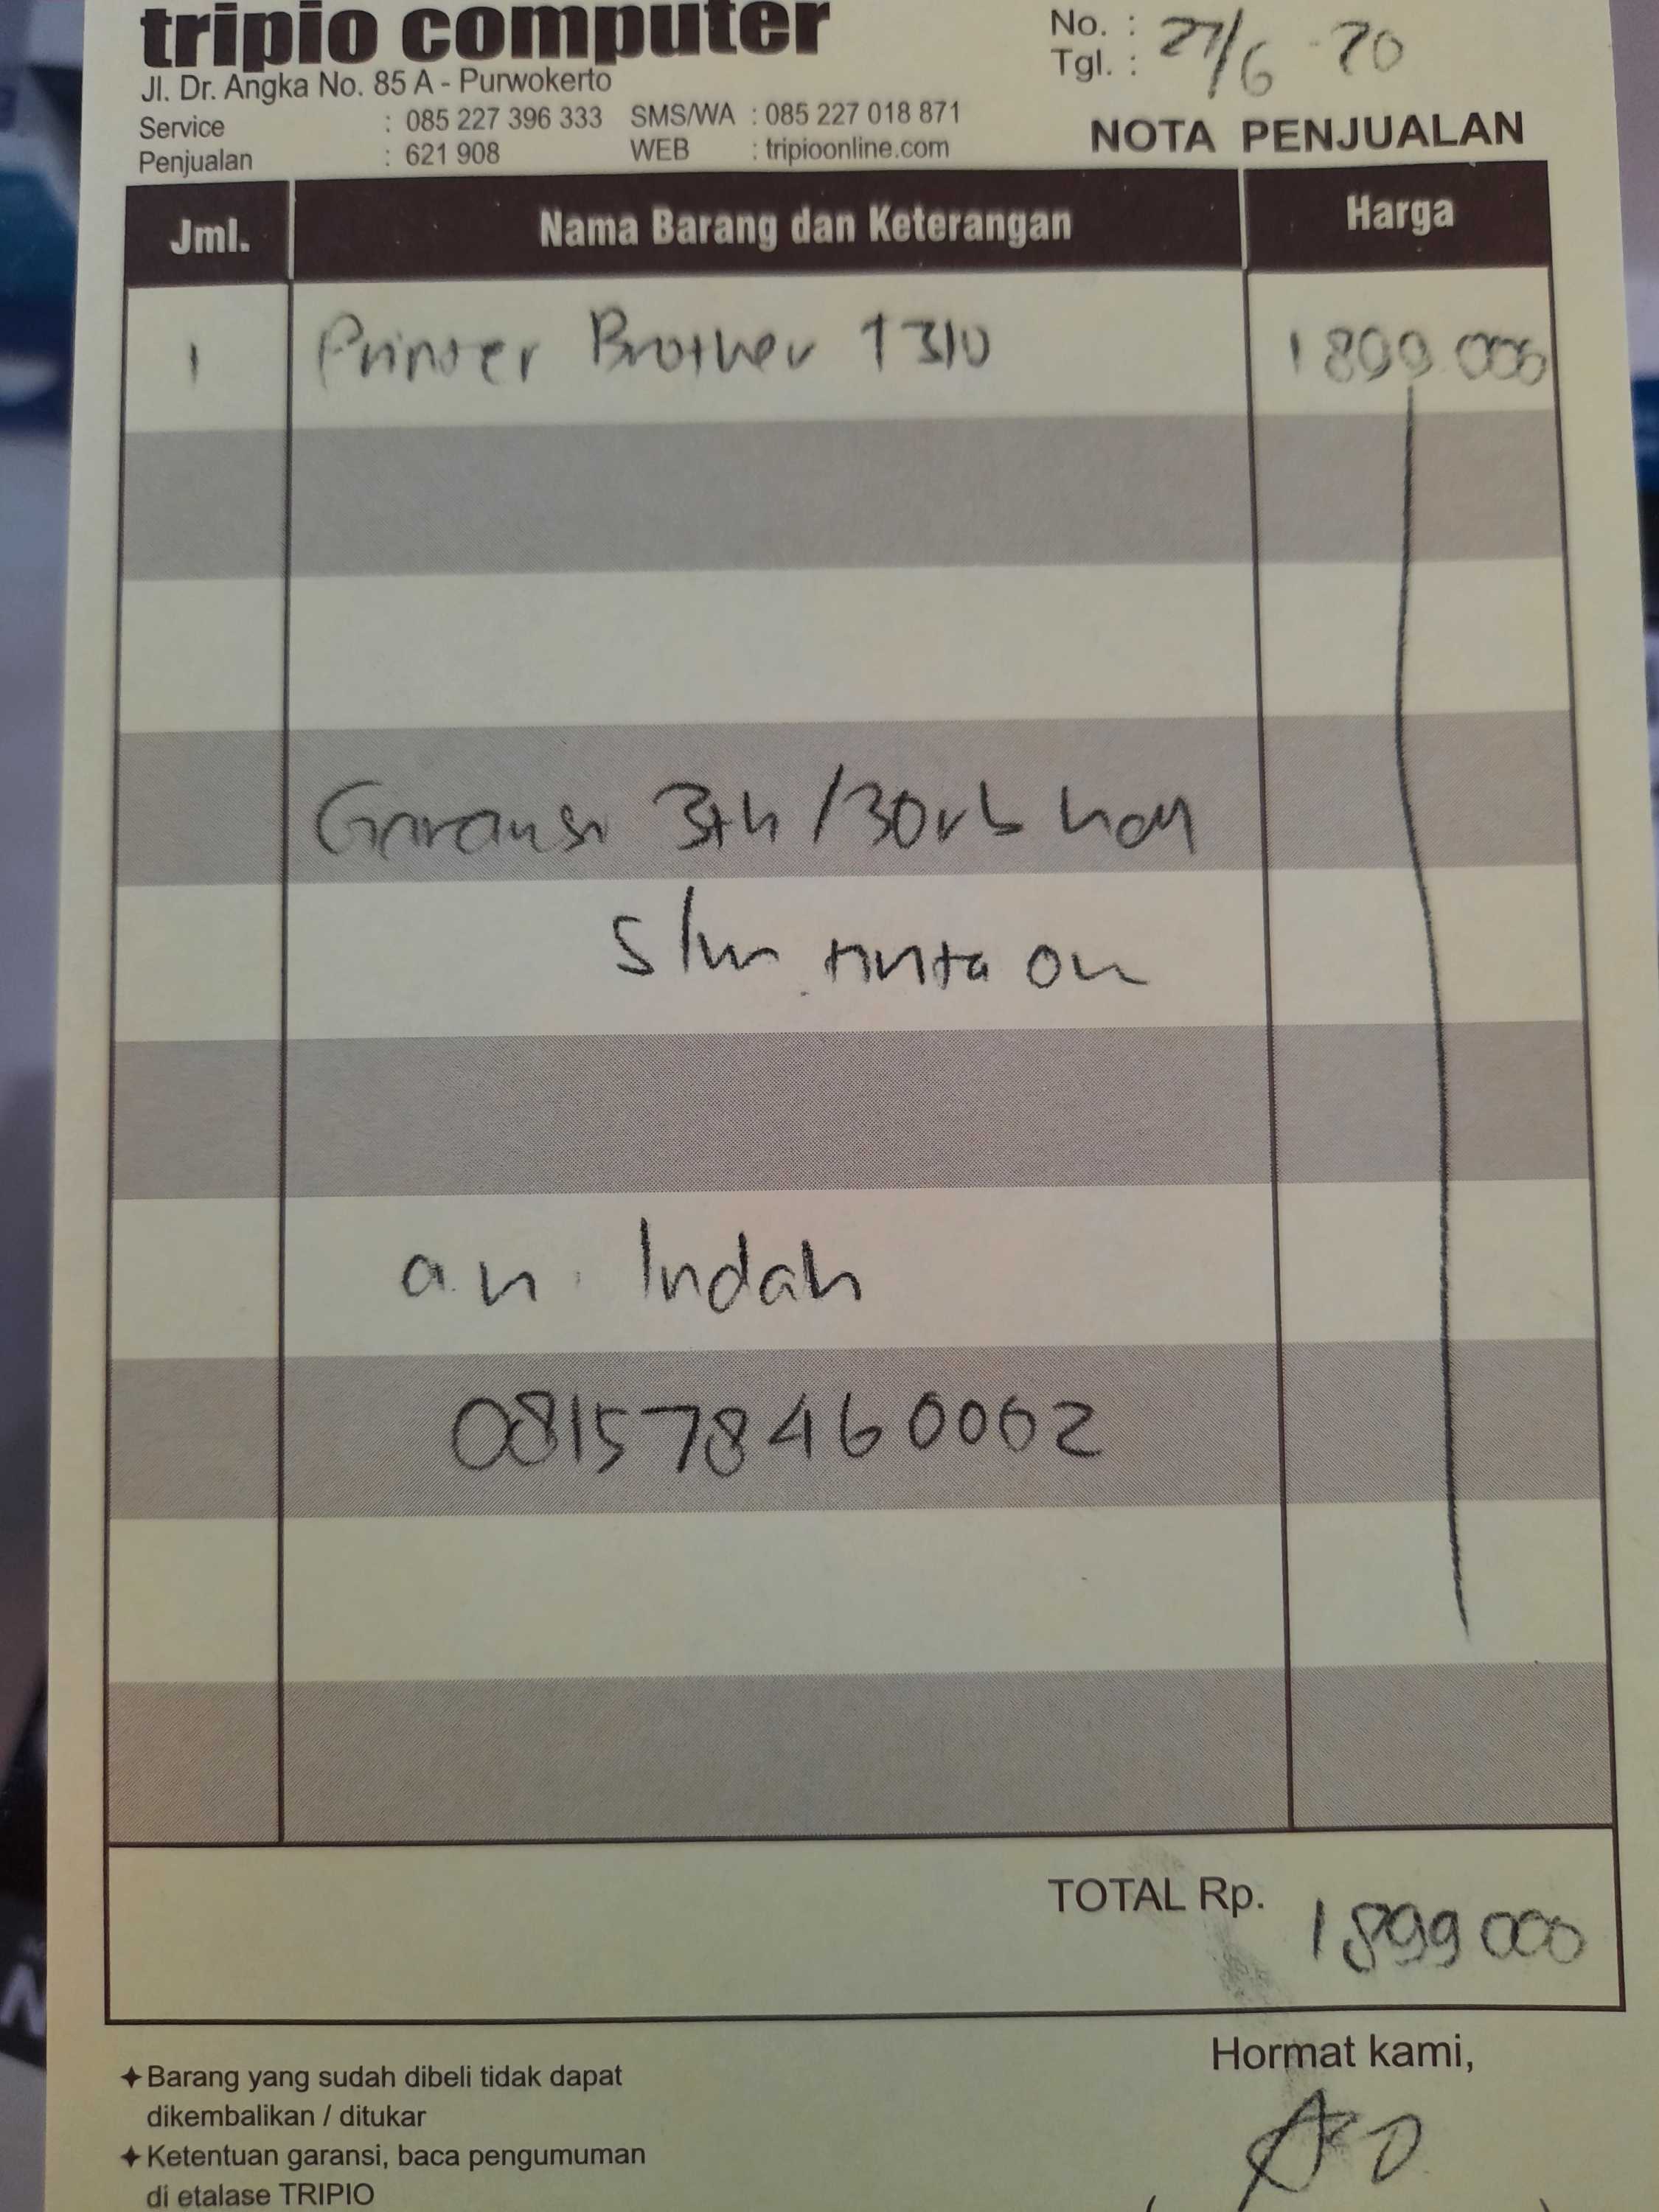 tripio computer
Jl. Dr. Angka No. 85 A - Purwokerto
Service : 085 227 396 333 SMS/WA : 085 227 018 871
Penjualan : 621 908 WEB : tripioonline.com
No. :
Tgl. : 27/6 - 20
NOTA PENJUALAN
Jml. Nama Barang dan Keterangan Harga
1 Printer Brother T310 1 899 000
Garansi 3th/30rb hal
slm tinta ori
a.n. Indah
081578460062
TOTAL Rp. 1 899 000
Hormat kami,
✦ Barang yang sudah dibeli tidak dapat
dikembalikan / ditukar
✦ Ketentuan garansi, baca pengumuman
di etalase TRIPIO